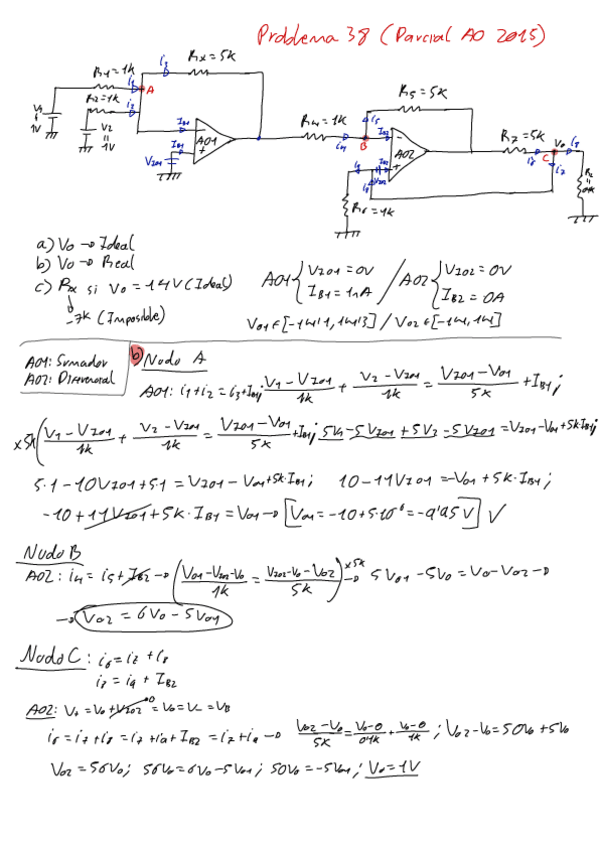 Problema 38 (Parcial AO 2015)
R1=1k
Rx=5k
i3
i1
A
R2=1k
i2
V1
1V
V2
1V
IB1
IB1
VZ01
A01
R4=1k
i4
B
R5=5k
i5
IB2
IB2
VZ02
A02
R7=5k
i6
Vo
C
i7
R6=1k
a) Vo → Ideal
b) Vo → Real
c) Rx si Vo = 14V (Ideal)
-7k (Imposible)
A01 { VZ01 = 0V / A02 { VZ02 = 0V
IB1 = 1nA IB2 = 0A
V01 ∈ [-14'1, 14'3] / V02 ∈ [-14, 14]
A01: Sumador
A02: Diferencial
b) Nodo A
A01: i1+i2 = i3+IB1; (V1-VZ01)/1k + (V2-VZ01)/1k = (VZ01-V01)/5k + IB1;
x5k( (V1-VZ01)/1k + (V2-VZ01)/1k = (VZ01-V01)/5k + IB1; 5V1-5VZ01+5V2-5VZ01 = VZ01-V01+5k·IB1
5·1-10VZ01+5·1 = VZ01-V01+5k·IB1; 10-11VZ01 = -V01+5k·IB1;
-10+11VZ01+5k·IB1 = V01 → [V01 = -10+5·10⁻⁶ = -9'95V] ✓
Nodo B
A02: i4 = i5+IB2 → ( (V01-VZ02-Vo)/1k = (VZ02-Vo-V02)/5k )x5k → 5V01-5Vo = Vo-V02 →
→ V02 = 6Vo-5V01
Nodo C: i6 = i7+i8
i8 = i9+IB2
A02: V+ = Vo+VZ02 = Vo = V- = VB
i6 = i7+i8 = i7+i9+IB2 = i7+i9 → (V02-Vo)/5k = (Vo-0)/0'1k + (Vo-0)/1k; V02-Vo = 50Vo+5Vo
V02 = 56Vo; 56Vo = 6Vo-5V01; 50Vo = -5V01; Vo = 1V